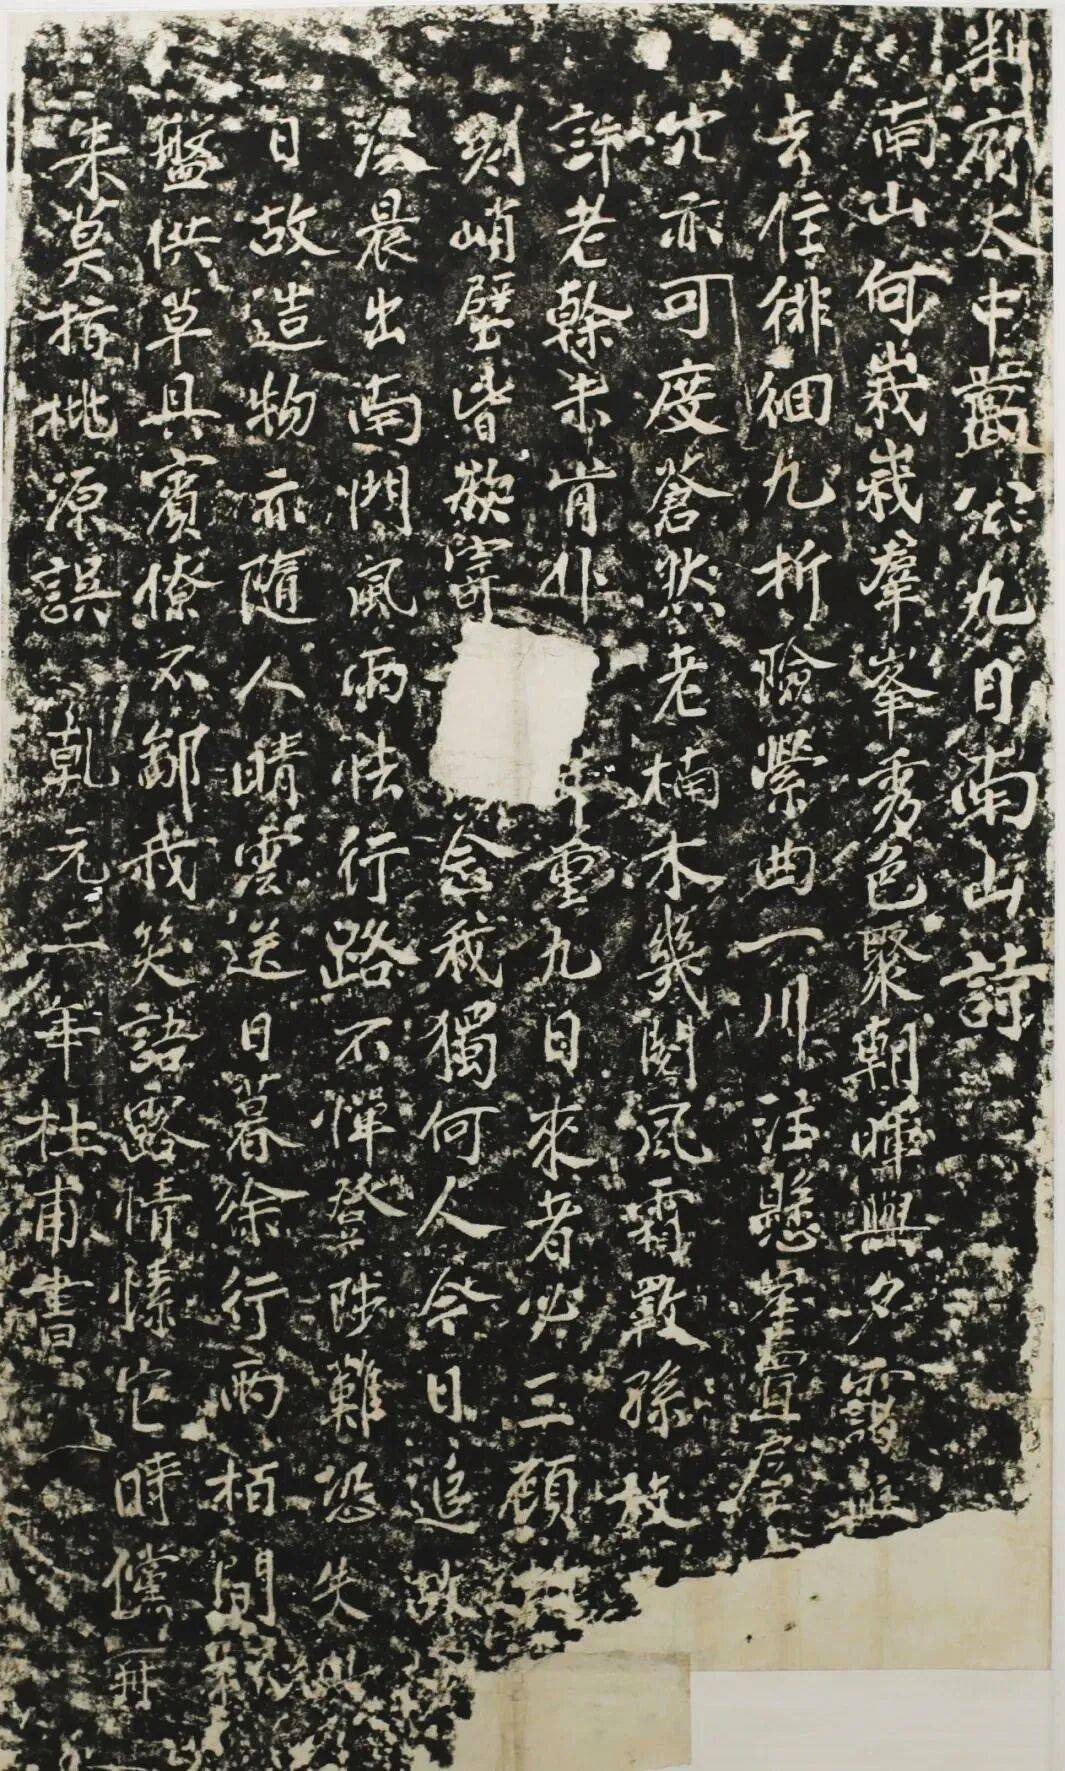 判府太中嚴公九日南山詩
南山何峩峩羣峯秀色聚朝暉與夕霏
去住徘徊九折險縈曲一川注懸崖置屋
亦可度蒼然老楠木幾閱風霜數孫枝
許老榦未肯仆重九日來者必三顧
刻峭壁皆欲寄念我獨何人今日追故
凌晨出南閈風雨怯行路不憚登陟難恐失
日故造物亦隨人晴雲送日暮徐行兩栢間
盤供草具賓僚不鄙我笑語露情愫它時儻再
来莫指桃源誤 乾元二年杜甫書